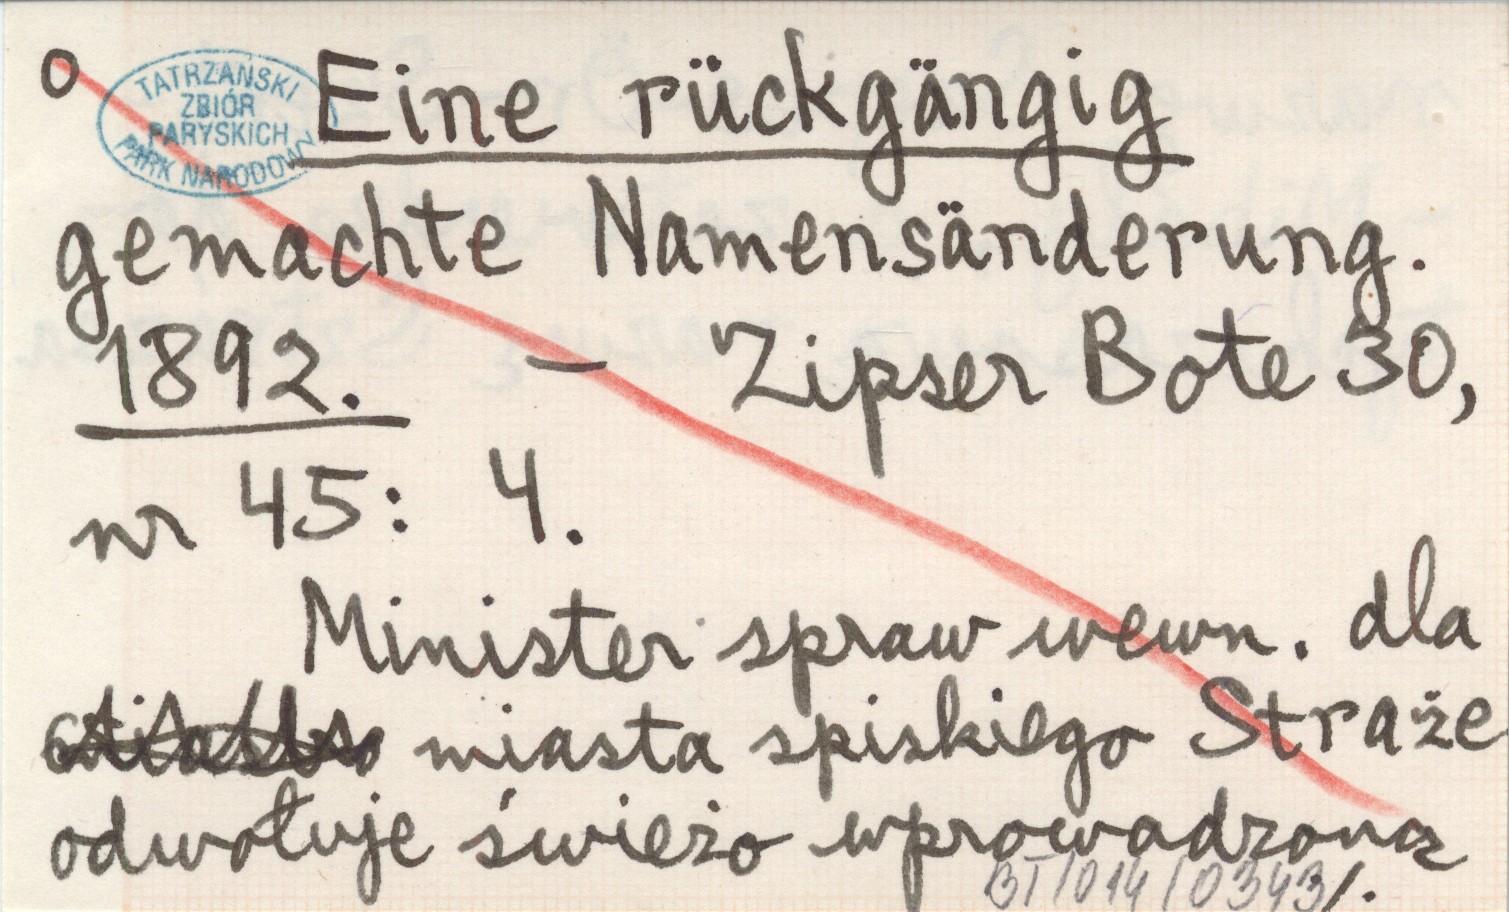 o
TATRZAŃSKI
ZBIÓR
PARYSKICH
PARK NARODOWY
Eine rückgängig
gemachte Namensänderung.
1892. – Zipser Bote 30,
nr 45: 4.
Minister spraw wewn. dla
miasta spiskiego Straże
odwołuje świeżo wprowadzoną
BT/014/0343/.